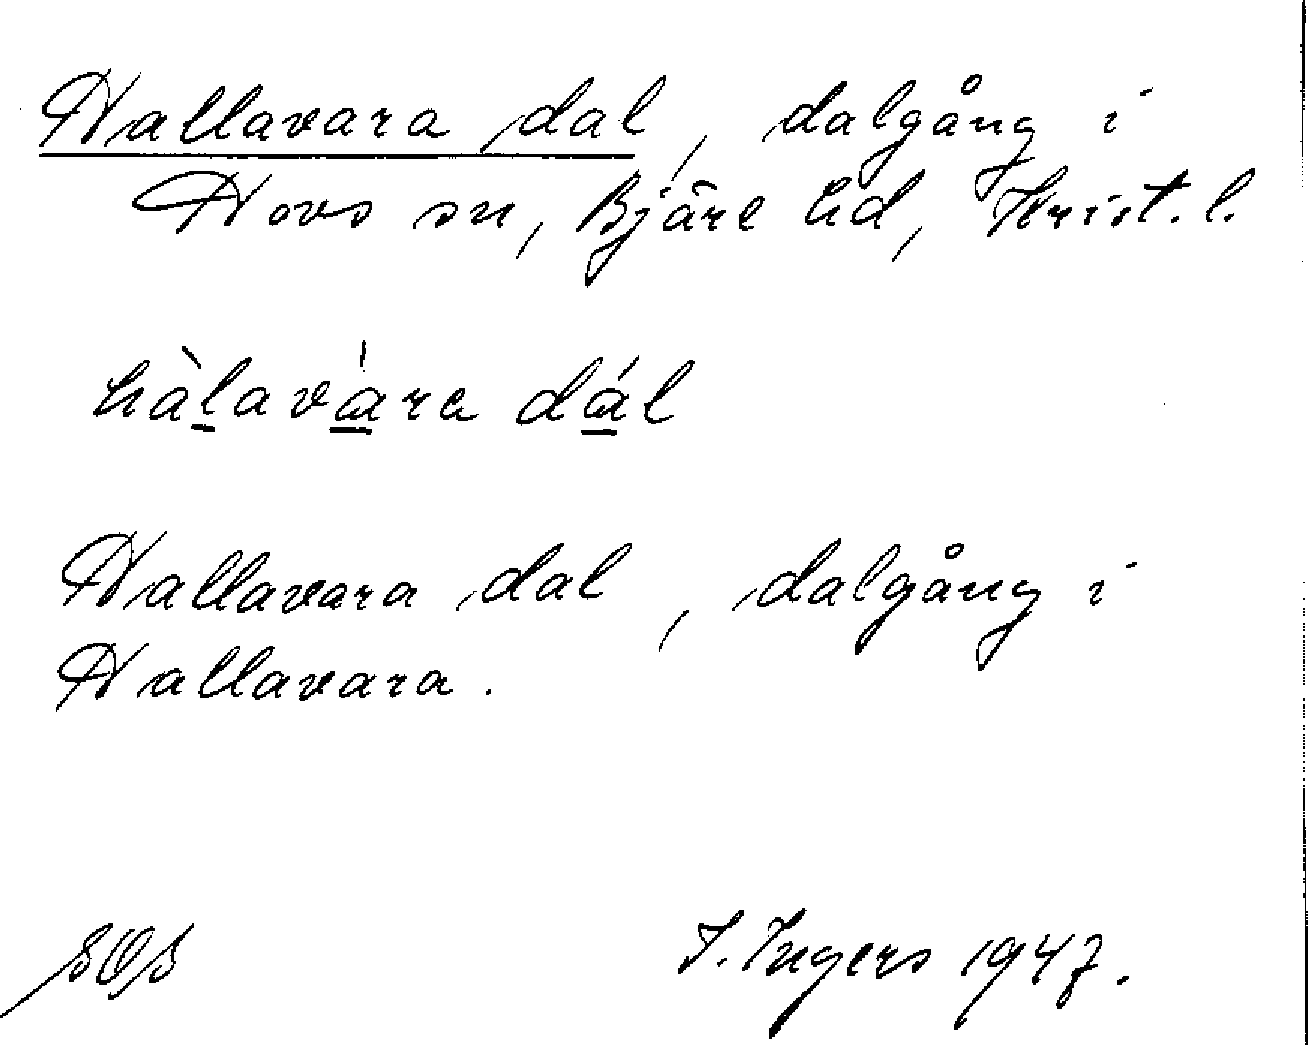 Hallavara dal, dalgång i
Hovs sn, Bjäre hd, Krist. l.
hàlavàra dál
Hallavara dal, dalgång i
Hallavara.
SOS I. Ingers 1947.